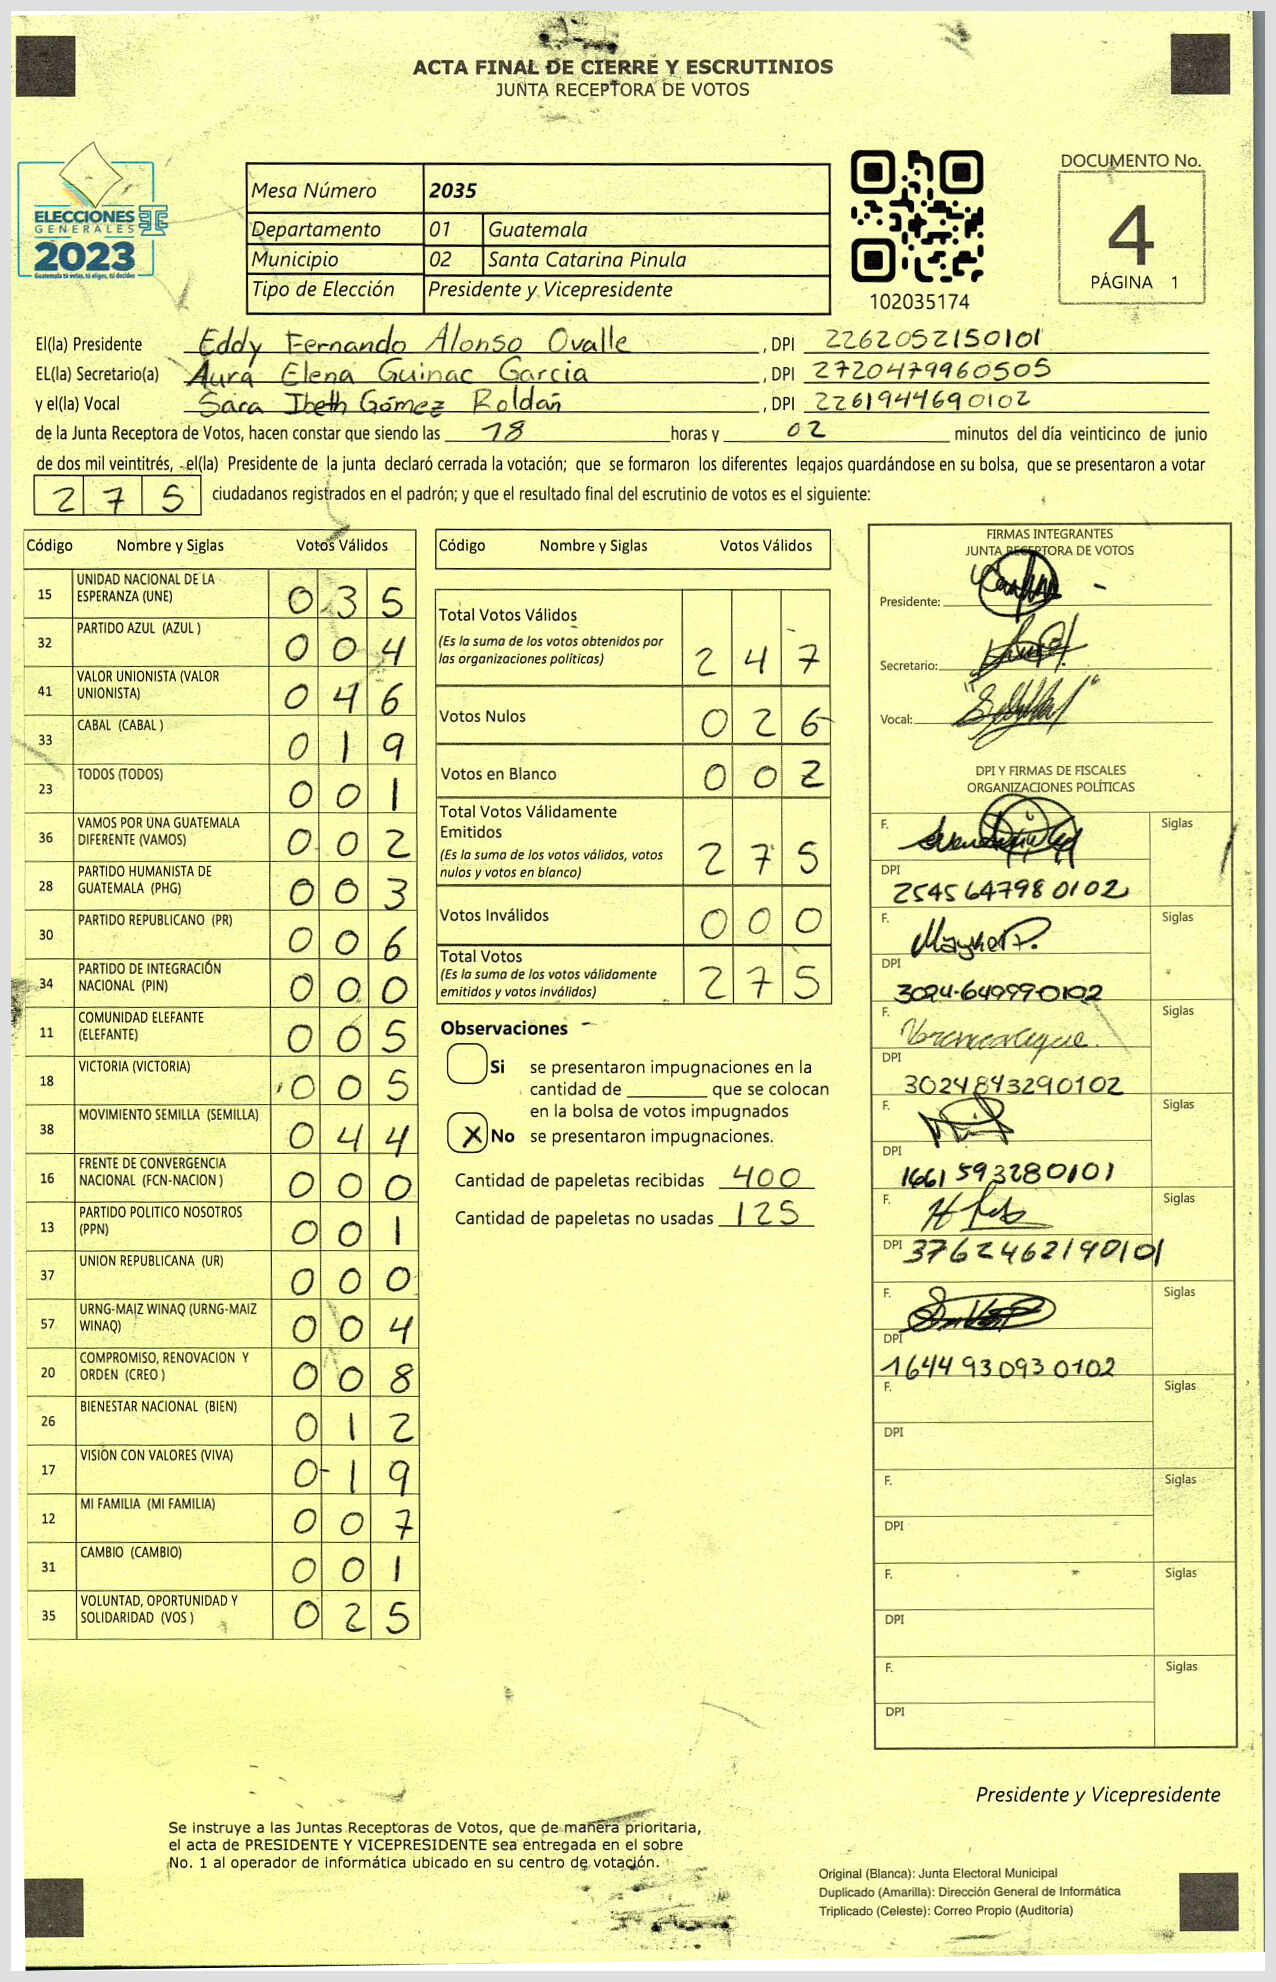 ACTA FINAL DE CIERRE Y ESCRUTINIOS
JUNTA RECEPTORA DE VOTOS
ELECCIONES
GENERALES
2023
Guatemala tú votas, tú eliges, tú decides
Mesa Número 2035
Departamento 01 Guatemala
Municipio 02 Santa Catarina Pinula
Tipo de Elección Presidente y Vicepresidente
102035174
DOCUMENTO No.
4
PÁGINA 1
El(la) Presidente Eddy Fernando Alonso Ovalle, DPI 2262052150101
EL(la) Secretario(a) Aura Elena Guinac Garcia, DPI 2720479960505
y el(la) Vocal Sara Ibeth Gómez Roldán, DPI 2261944690102
de la Junta Receptora de Votos, hacen constar que siendo las 18 horas y 02 minutos del día veinticinco de junio
de dos mil veintitrés, el(la) Presidente de la junta declaró cerrada la votación; que se formaron los diferentes legajos guardándose en su bolsa, que se presentaron a votar
275 ciudadanos registrados en el padrón; y que el resultado final del escrutinio de votos es el siguiente:
Código Nombre y Siglas Votos Válidos
15 UNIDAD NACIONAL DE LA ESPERANZA (UNE) 035
32 PARTIDO AZUL (AZUL ) 004
41 VALOR UNIONISTA (VALOR UNIONISTA) 046
33 CABAL (CABAL ) 019
23 TODOS (TODOS) 001
36 VAMOS POR UNA GUATEMALA DIFERENTE (VAMOS) 002
28 PARTIDO HUMANISTA DE GUATEMALA (PHG) 003
30 PARTIDO REPUBLICANO (PR) 006
34 PARTIDO DE INTEGRACIÓN NACIONAL (PIN) 000
11 COMUNIDAD ELEFANTE (ELEFANTE) 005
18 VICTORIA (VICTORIA) 005
38 MOVIMIENTO SEMILLA (SEMILLA) 044
16 FRENTE DE CONVERGENCIA NACIONAL (FCN-NACION ) 000
13 PARTIDO POLITICO NOSOTROS (PPN) 001
37 UNION REPUBLICANA (UR) 000
57 URNG-MAIZ WINAQ (URNG-MAIZ WINAQ) 004
20 COMPROMISO, RENOVACION Y ORDEN (CREO ) 008
26 BIENESTAR NACIONAL (BIEN) 012
17 VISIÓN CON VALORES (VIVA) 019
12 MI FAMILIA (MI FAMILIA) 007
31 CAMBIO (CAMBIO) 001
35 VOLUNTAD, OPORTUNIDAD Y SOLIDARIDAD (VOS ) 025
Código Nombre y Siglas Votos Válidos
Total Votos Válidos
(Es la suma de los votos obtenidos por
las organizaciones políticas) 247
Votos Nulos 026
Votos en Blanco 002
Total Votos Válidamente
Emitidos
(Es la suma de los votos válidos, votos
nulos y votos en blanco) 275
Votos Inválidos 000
Total Votos
(Es la suma de los votos válidamente
emitidos y votos inválidos) 275
Observaciones
Si se presentaron impugnaciones en la
cantidad de ________ que se colocan
en la bolsa de votos impugnados
X No se presentaron impugnaciones.
Cantidad de papeletas recibidas 400
Cantidad de papeletas no usadas 125
FIRMAS INTEGRANTES
JUNTA RECEPTORA DE VOTOS
Presidente:
Secretario:
Vocal:
DPI Y FIRMAS DE FISCALES
ORGANIZACIONES POLÍTICAS
F. Siglas
DPI 2545647980102
F. Siglas
DPI 3024-64099-0102
F. Siglas
DPI 3024843290102
F. Siglas
DPI 1661593280101
F. Siglas
DPI 3762462190101
F. Siglas
DPI 1644930930102
F. Siglas
DPI
F. Siglas
DPI
F. Siglas
DPI
F. Siglas
DPI
Presidente y Vicepresidente
Se instruye a las Juntas Receptoras de Votos, que de manera prioritaria,
el acta de PRESIDENTE Y VICEPRESIDENTE sea entregada en el sobre
No. 1 al operador de informática ubicado en su centro de votación.
Original (Blanca): Junta Electoral Municipal
Duplicado (Amarilla): Dirección General de Informática
Triplicado (Celeste): Correo Propio (Auditoría)